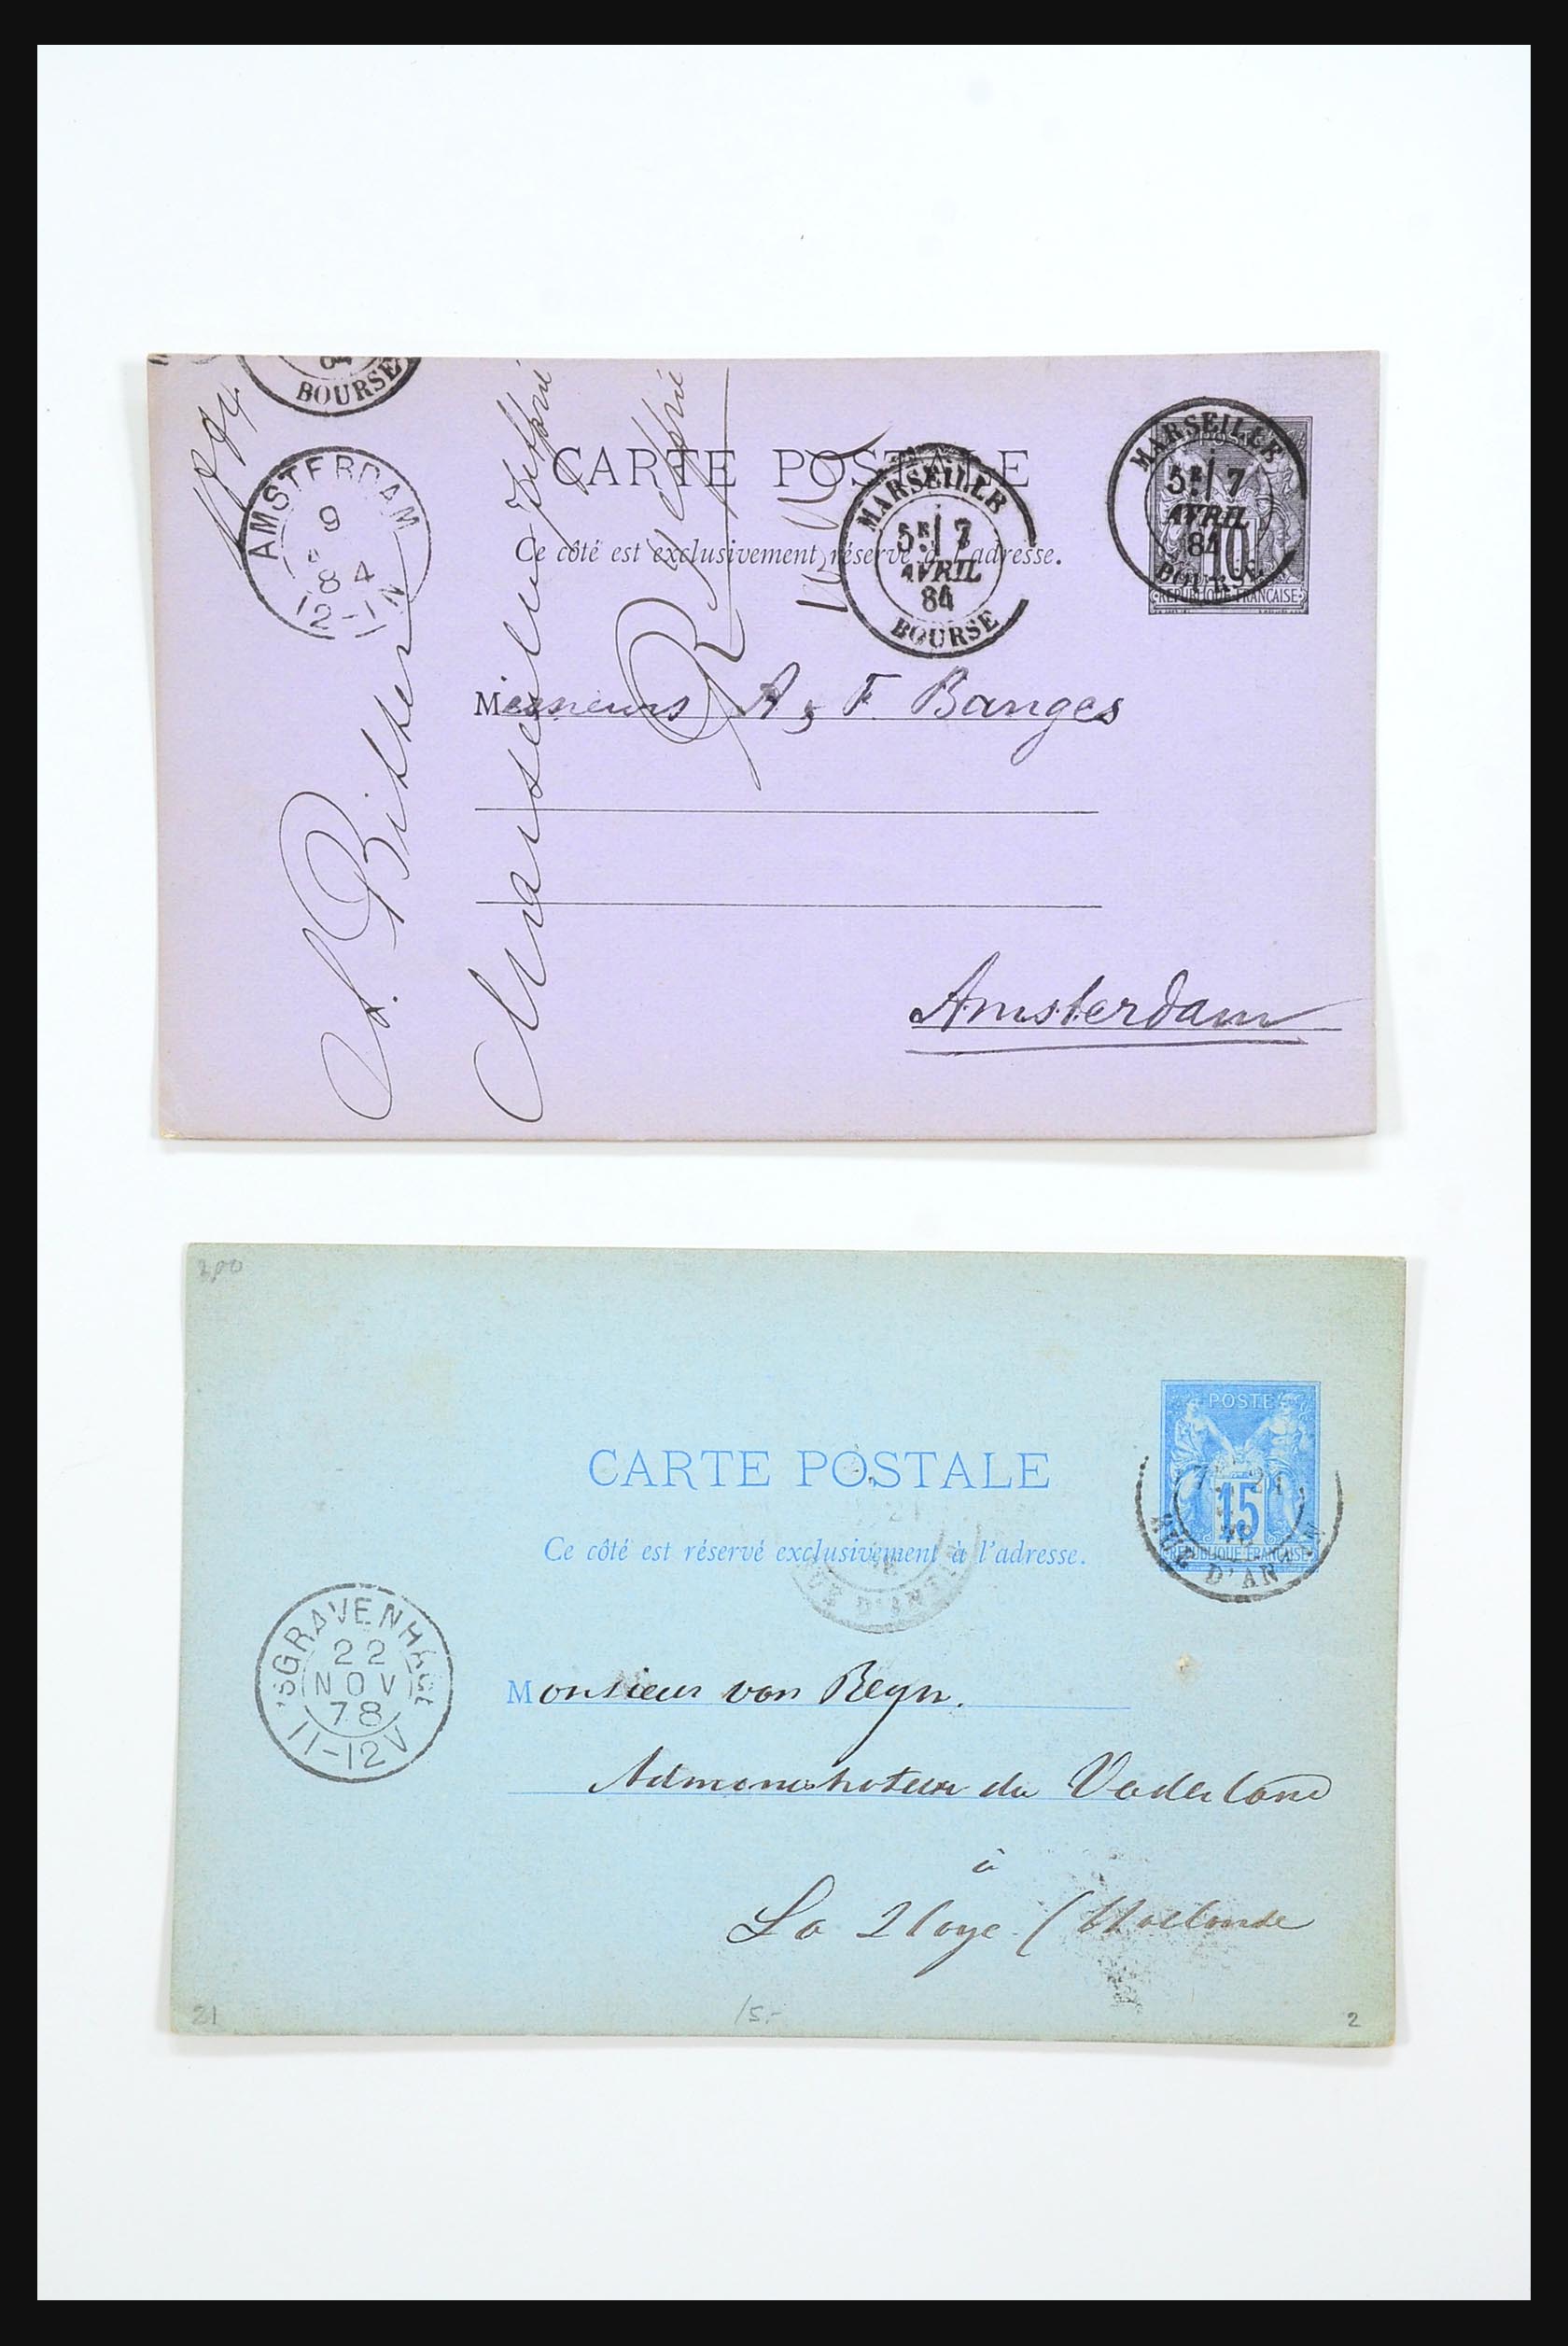 BOURSE
MARSEILLE
5E 7
AVRIL
84
BOURSE
10
REPUBLIQUE FRANÇAISE
CARTE POSTALE
MARSEILLE
5E 7
AVRIL
84
BOURSE
AMSTERDAM
9
84
12-1N
Ce côté est exclusivement réservé à l'adresse.
Messieurs A, F. Banges
Amsterdam
200
POSTE
15
REPUBLIQUE FRANÇAISE
21
RUE D'AN
CARTE POSTALE
Ce côté est réservé exclusivement à l'adresse.
RUE D'ANTIN
'SGRAVENHAGE
22
NOV
78
11-12V
Monsieur van Reyn.
Administrateur du Vaderland
à
La Haye (Hollande
21
15.-
2